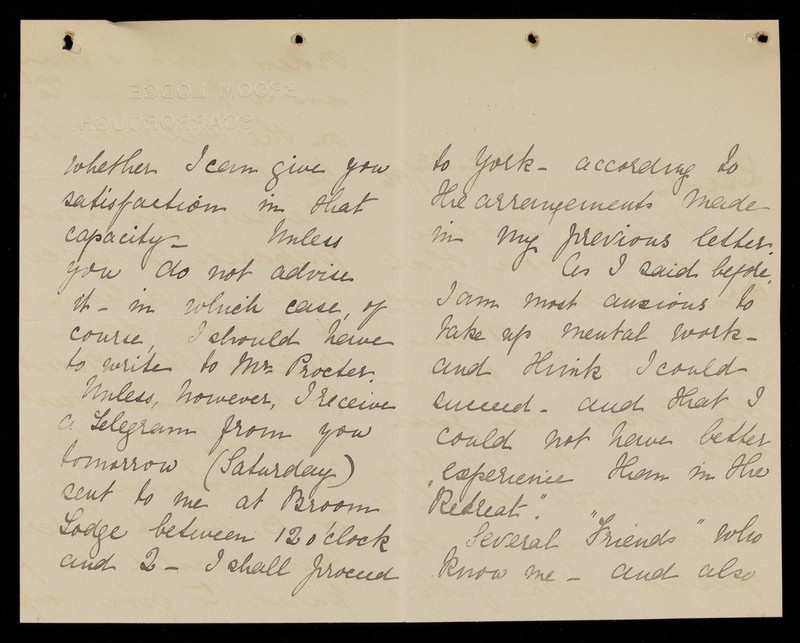 BROOM LODGE
SCARBOROUGH
whether I can give you
satisfaction in that
capacity – Unless
you do not advise
it – in which case, of
course, I should have
to write to Mr. Procter.
Unless, however, I receive
a Telegram from you
tomorrow (Saturday)
sent to me at Broom
Lodge between 12 o'clock
and 2 – I shall proceed
to York – according to
the arrangements made
in my previous letter.
As I said before,
I am most anxious to
take up mental work –
and think I could
succeed – and that I
could not have better
experience than in the
"Retreat".
Several "Friends" who
know me – and also